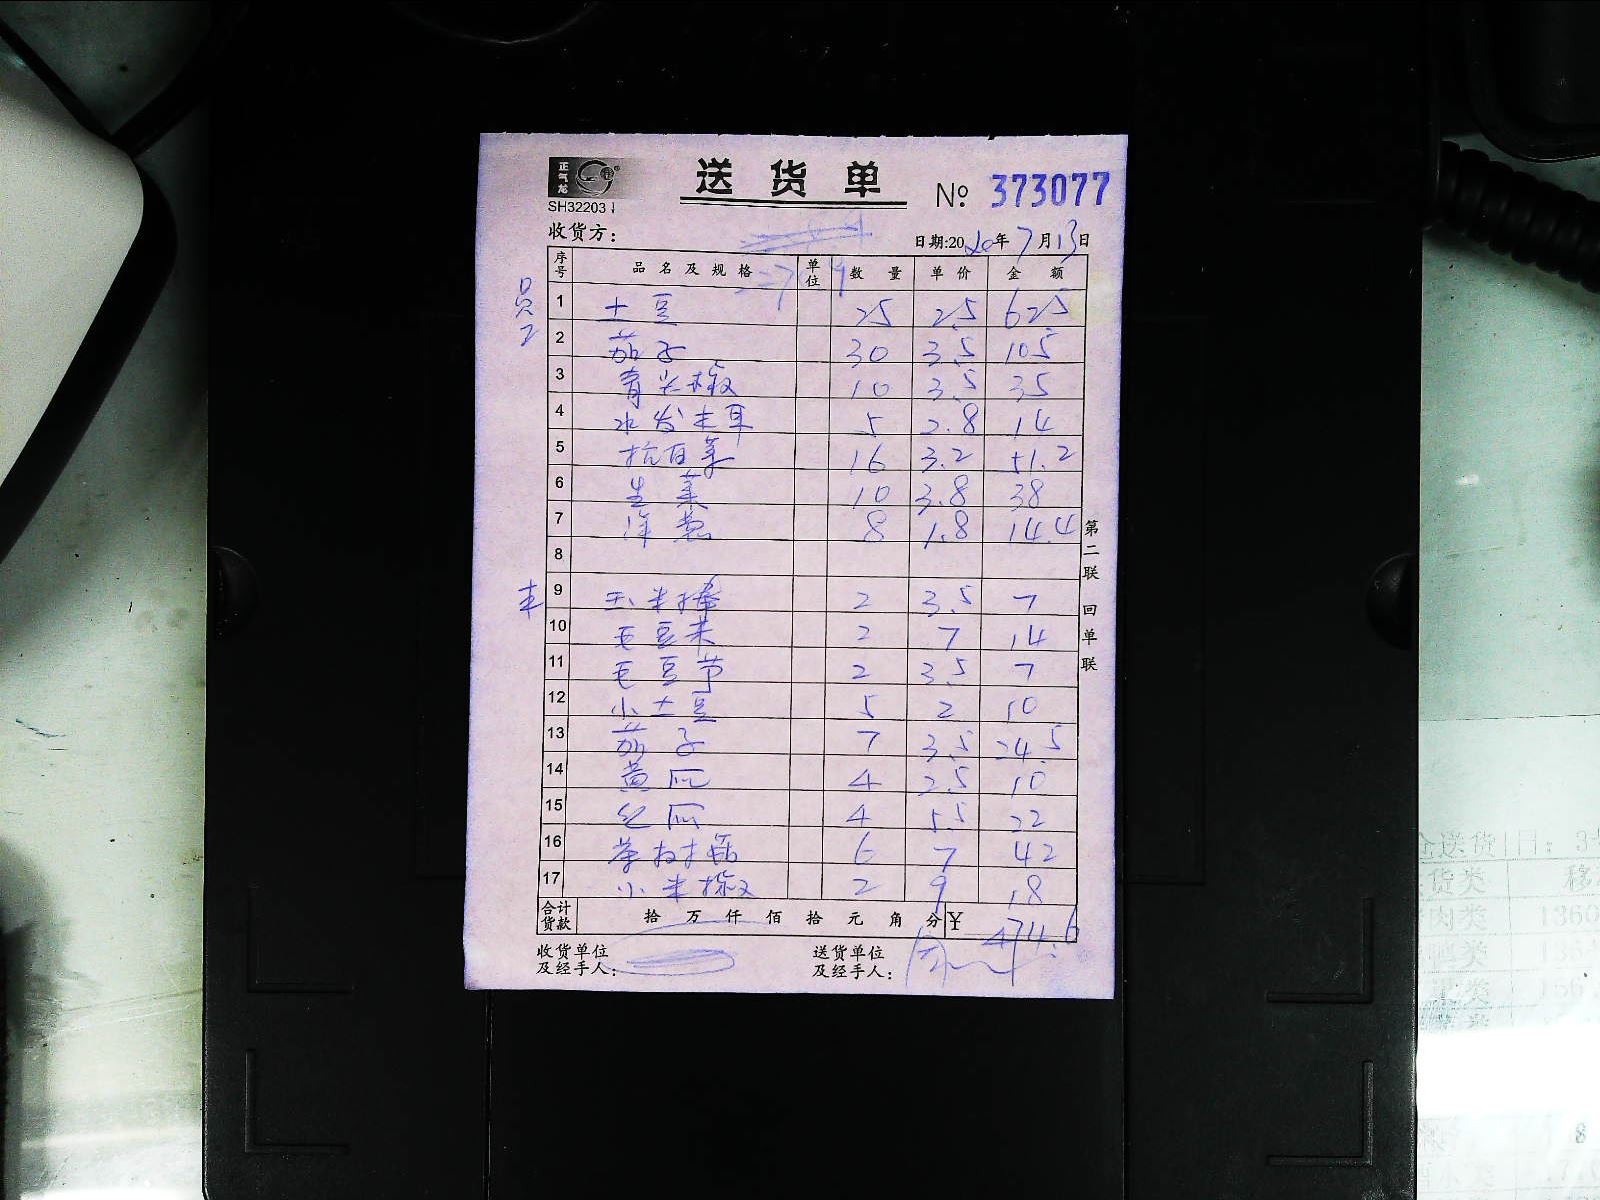 正气龙
送货单
№ 373077
SH32203
收货方：
日期:2020年7月13日
序号 品名及规格 单位 数量 单价 金额
员工
1 土豆 25 2.5 62.5
2 茄子 30 3.5 105
3 青尖椒 10 3.5 35
4 水发木耳 5 2.8 14
5 抗白菜 16 3.2 51.2
6 生菜 10 3.8 38
7 洋葱 8 1.8 14.4
8
9 玉米棒 2 3.5 7
10 毛豆米 2 7 14
11 毛豆节 2 3.5 7
12 小土豆 5 2 10
13 茄子 7 3.5 24.5
14 黄瓜 4 2.5 10
15 丝瓜 4 5.5 22
16 茶树菇 6 7 42
17 小米椒 2 9 18
合计货款 拾 万 仟 佰 拾 元 角 分 ¥ 474.6
收货单位及经手人：
送货单位及经手人：
第二联 回单联
送货 日: 3
货类 移
肉类 1360
类
类 156